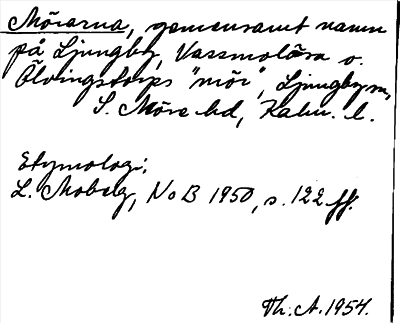 Möiarna, gemensamt namn
på Ljungby, Vassmolösa o.
Ölvingstorps "möi", Ljungby sn,
S. Möre hd, Kalm. l.
Etymologi:
L. Moberg, NoB 1950, s. 122 ff.
Th. A. 1954.